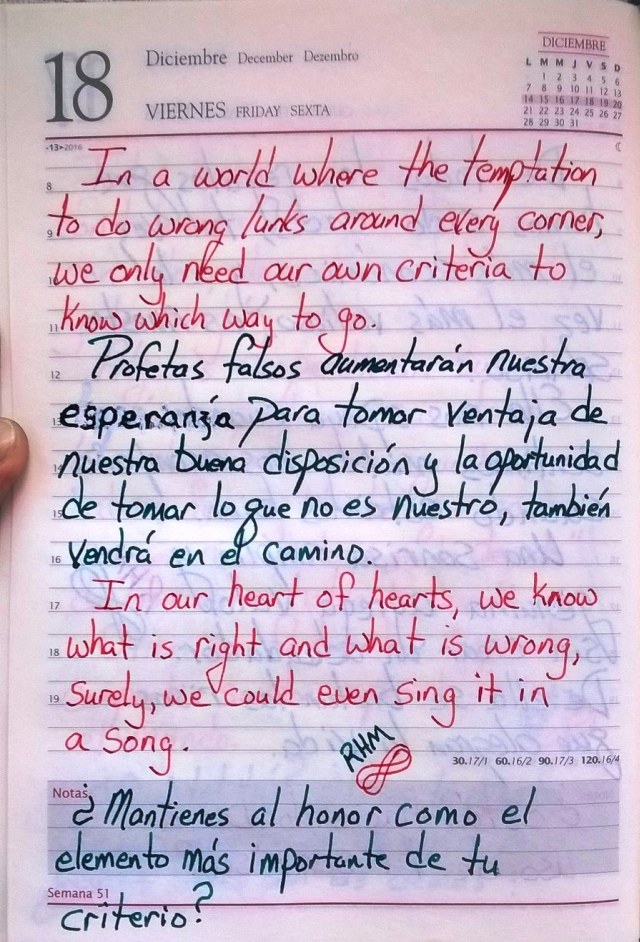 18
Diciembre December Dezembro
VIERNES FRIDAY SEXTA
DICIEMBRE
L M M J V S D
1 2 3 4 5 6
7 8 9 10 11 12 13
14 15 16 17 18 19 20
21 22 23 24 25 26 27
28 29 30 31
-13-2016
8 In a world where the temptation
9 to do wrong lurks around every corner,
10 we only need our own criteria to
11 know which way to go.
12 Profetas falsos aumentarán nuestra
13 esperanza para tomar ventaja de
14 nuestra buena disposición y la oportunidad
15 de tomar lo que no es nuestro, también
16 vendrá en el camino.
17 In our heart of hearts, we know
18 what is right and what is wrong,
19 Surely, we could even sing it in
a song.
RHM
30.17/1 60.16/2 90.17/3 120.16/4
Notas
¿Mantienes al honor como el
elemento más importante de tu
Semana 51
criterio?